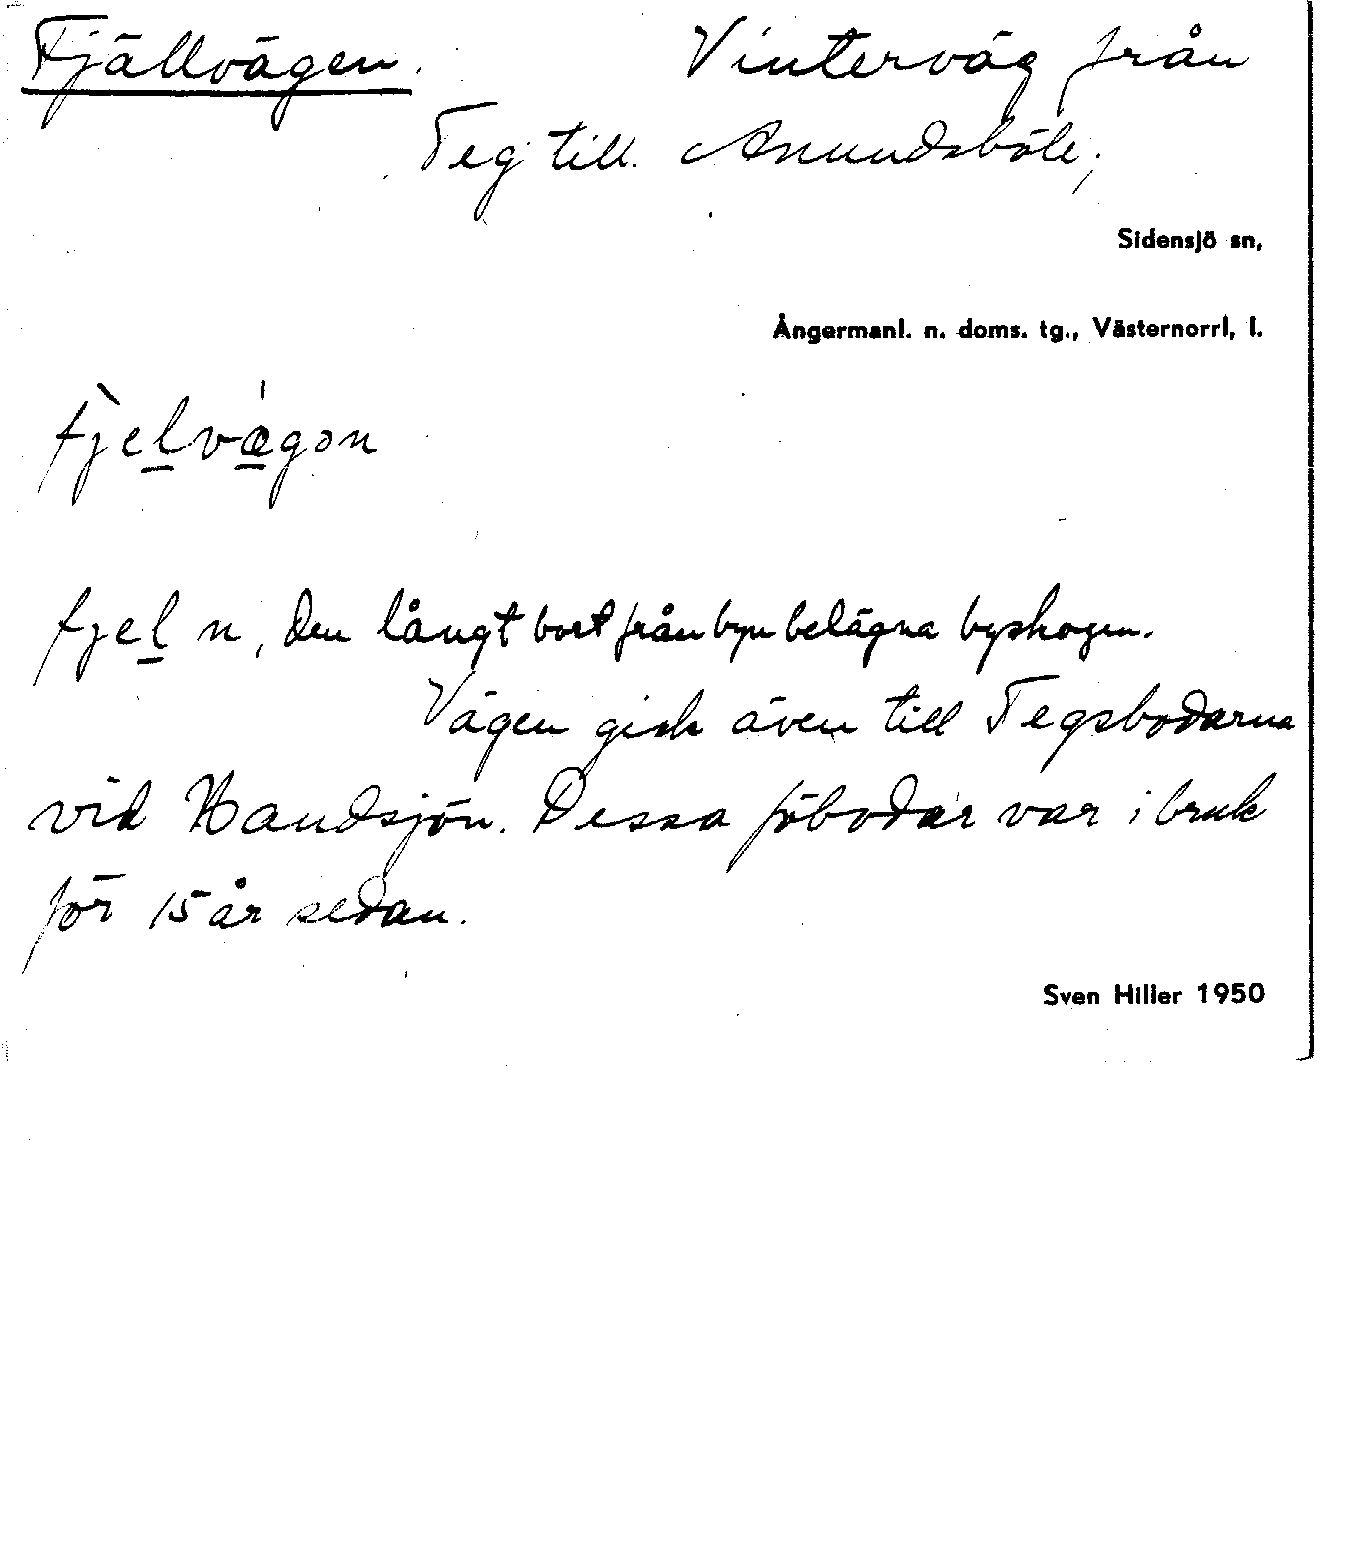 Fjällvägen. Vinterväg från
Teg till Anundsböle,
Sidensjö sn,
Ångermanl. n. doms. tg., Västernorrl, l.
fjèl̲vǽ̲gɔn
fjel̲ n, den långt bort från byn belägna byskogen.
Vägen gick även till Tegsbodarna
vid Handsjön. Dessa föbodar var i bruk
för 15 år sedan.
Sven Hiller 1950